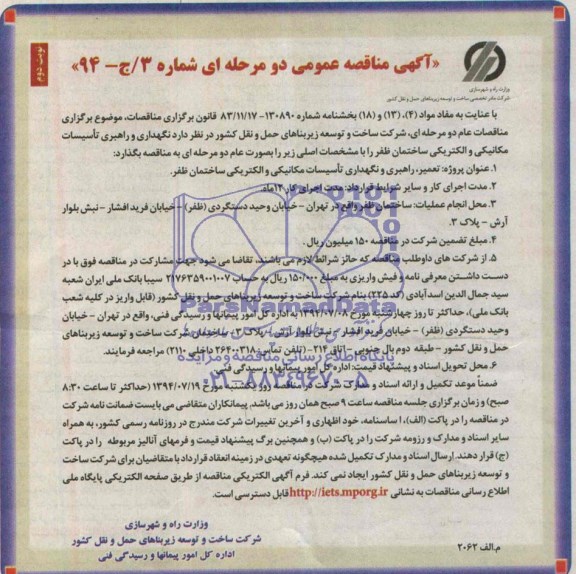 نوبت دوم
«آگهی مناقصه عمومی دو مرحله ای شماره ۳/ج- ۹۴»
وزارت راه و شهرسازی
شرکت مادر تخصصی ساخت و توسعه زیربناهای حمل و نقل کشور
با عنایت به مفاد مواد (۴)، (۱۳) و (۱۸) بخشنامه شماره ۱۳۰۸۹۰- ۸۳/۱۱/۱۷ قانون برگزاری مناقصات، موضوع برگزاری
مناقصات عام دو مرحله ای، شرکت ساخت و توسعه زیربناهای حمل و نقل کشور در نظر دارد نگهداری و راهبری تأسیسات
مکانیکی و الکتریکی ساختمان ظفر را با مشخصات اصلی زیر را بصورت عام دو مرحله ای به مناقصه بگذارد:
۱. عنوان پروژه: تعمیر، راهبری و نگهداری تأسیسات مکانیکی و الکتریکی ساختمان ظفر.
۲. مدت اجرای کار و سایر شرایط قرارداد: مدت اجرای کار ۱۲ماه.
۳. محل انجام عملیات: ساختمان ظفر واقع در تهران - خیابان وحید دستگردی (ظفر) - خیابان فرید افشار - نبش بلوار
آرش - پلاک ۳.
۴. مبلغ تضمین شرکت در مناقصه ۱۵۰ میلیون ریال.
۵. از شرکت های داوطلب مناقصه که حائز شرائط لازم می باشند، تقاضا می شود جهت مشارکت در مناقصه فوق با در
دست داشتن معرفی نامه و فیش واریزی به مبلغ ۱۵۰/۰۰۰ ریال به حساب ۲۱۷۶۳۵۹۰۰۱۰۰۷ سیبا بانک ملی ایران شعبه
سید جمال الدین اسدآبادی (کد ۲۲۵) بنام شرکت ساخت و توسعه زیربناهای حمل و نقل کشور (قابل واریز در کلیه شعب
بانک ملی)، حداکثر تا روز چهارشنبه مورخ ۱۳۹۴/۰۷/۰۸ به اداره کل امور پیمانها و رسیدگی فنی، واقع در تهران - خیابان
وحید دستگردی (ظفر) - خیابان فرید افشار - نبش بلوار آرش - پلاک ۳- ساختمان شرکت ساخت و توسعه زیربناهای
حمل و نقل کشور - طبقه دوم بال جنوبی - اتاق ۲۱۴- (تلفن تماس: ۲۶۴۰۰۳۱۸ داخلی ۲۱۱۰) مراجعه فرمایند.
۶. محل تحویل اسناد و پیشنهاد قیمت: اداره کل امور پیمانها و رسیدگی فنی
ضمناً موعد تکمیل و ارائه اسناد و مدارک شرکت در مناقصه روز یکشنبه مورخ ۱۳۹۴/۰۷/۱۹ (حداکثر تا ساعت ۸:۳۰
صبح) و زمان برگزاری جلسه مناقصه ساعت ۹ صبح همان روز می باشد. پیمانکاران متقاضی می بایست ضمانت نامه شرکت
در مناقصه را در پاکت (الف)، اساسنامه، خود اظهاری و آخرین تغییرات شرکت مندرج در روزنامه رسمی کشور، به همراه
سایر اسناد و مدارک و رزومه شرکت را در پاکت (ب) و همچنین برگ پیشنهاد قیمت و فرمهای آنالیز مربوطه را در پاکت
(ج) قرار دهند. ارسال اسناد و مدارک تکمیل شده هیچگونه تعهدی در زمینه انعقاد قرارداد با متقاضیان برای شرکت ساخت
و توسعه زیربناهای حمل و نقل کشور ایجاد نمی کند. فرم آگهی الکتریکی مناقصه از طریق صفحه الکتریکی پایگاه ملی
اطلاع رسانی مناقصات به نشانی http://iets.mporg.ir قابل دسترسی است.
وزارت راه و شهرسازی
شرکت ساخت و توسعه زیربناهای حمل و نقل کشور
اداره کل امور پیمانها و رسیدگی فنی
م.الف ۲۰۶۲
ParsNamadData
پایگاه اطلاع رسانی مناقصه و مزایده
۰۲۱-۸۸۳۴۹۶۷۰-۵